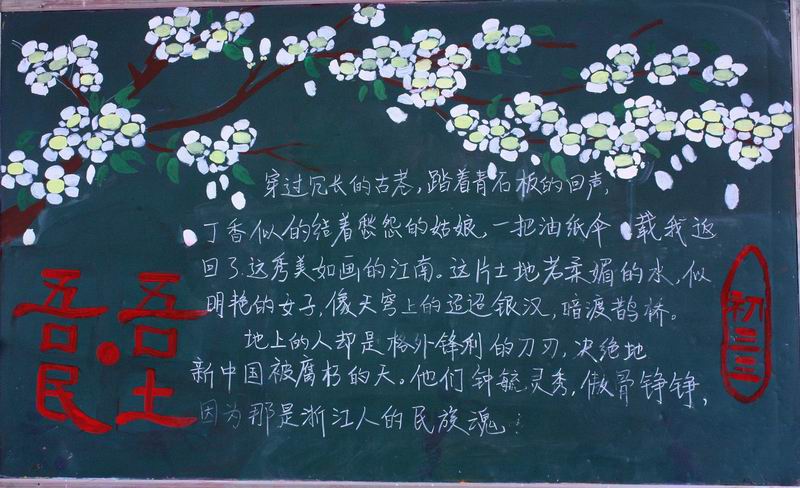 穿过冗长的古巷，踏着青石板的回声，
丁香似的结着愁怨的姑娘，一把油纸伞，载我返
回了这秀美如画的江南。这片土地若柔媚的水，似
明艳的女子，像天穹上的迢迢银汉，暗渡鹊桥。
地上的人却是格外锋利的刀刃，决绝地
新中国被腐朽的天。他们钟毓灵秀，傲骨铮铮，
因为那是浙江人的民族魂
吾土
吾民
初二三